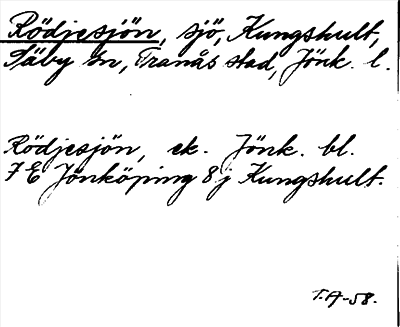 Rödjesjön, sjö, Kungshult,
Säby sn, Tranås stad, Jönk. l.
Rödjesjön, ek. Jönk. bl.
7E Jönköping 8j Kungshult.
T.A-58.